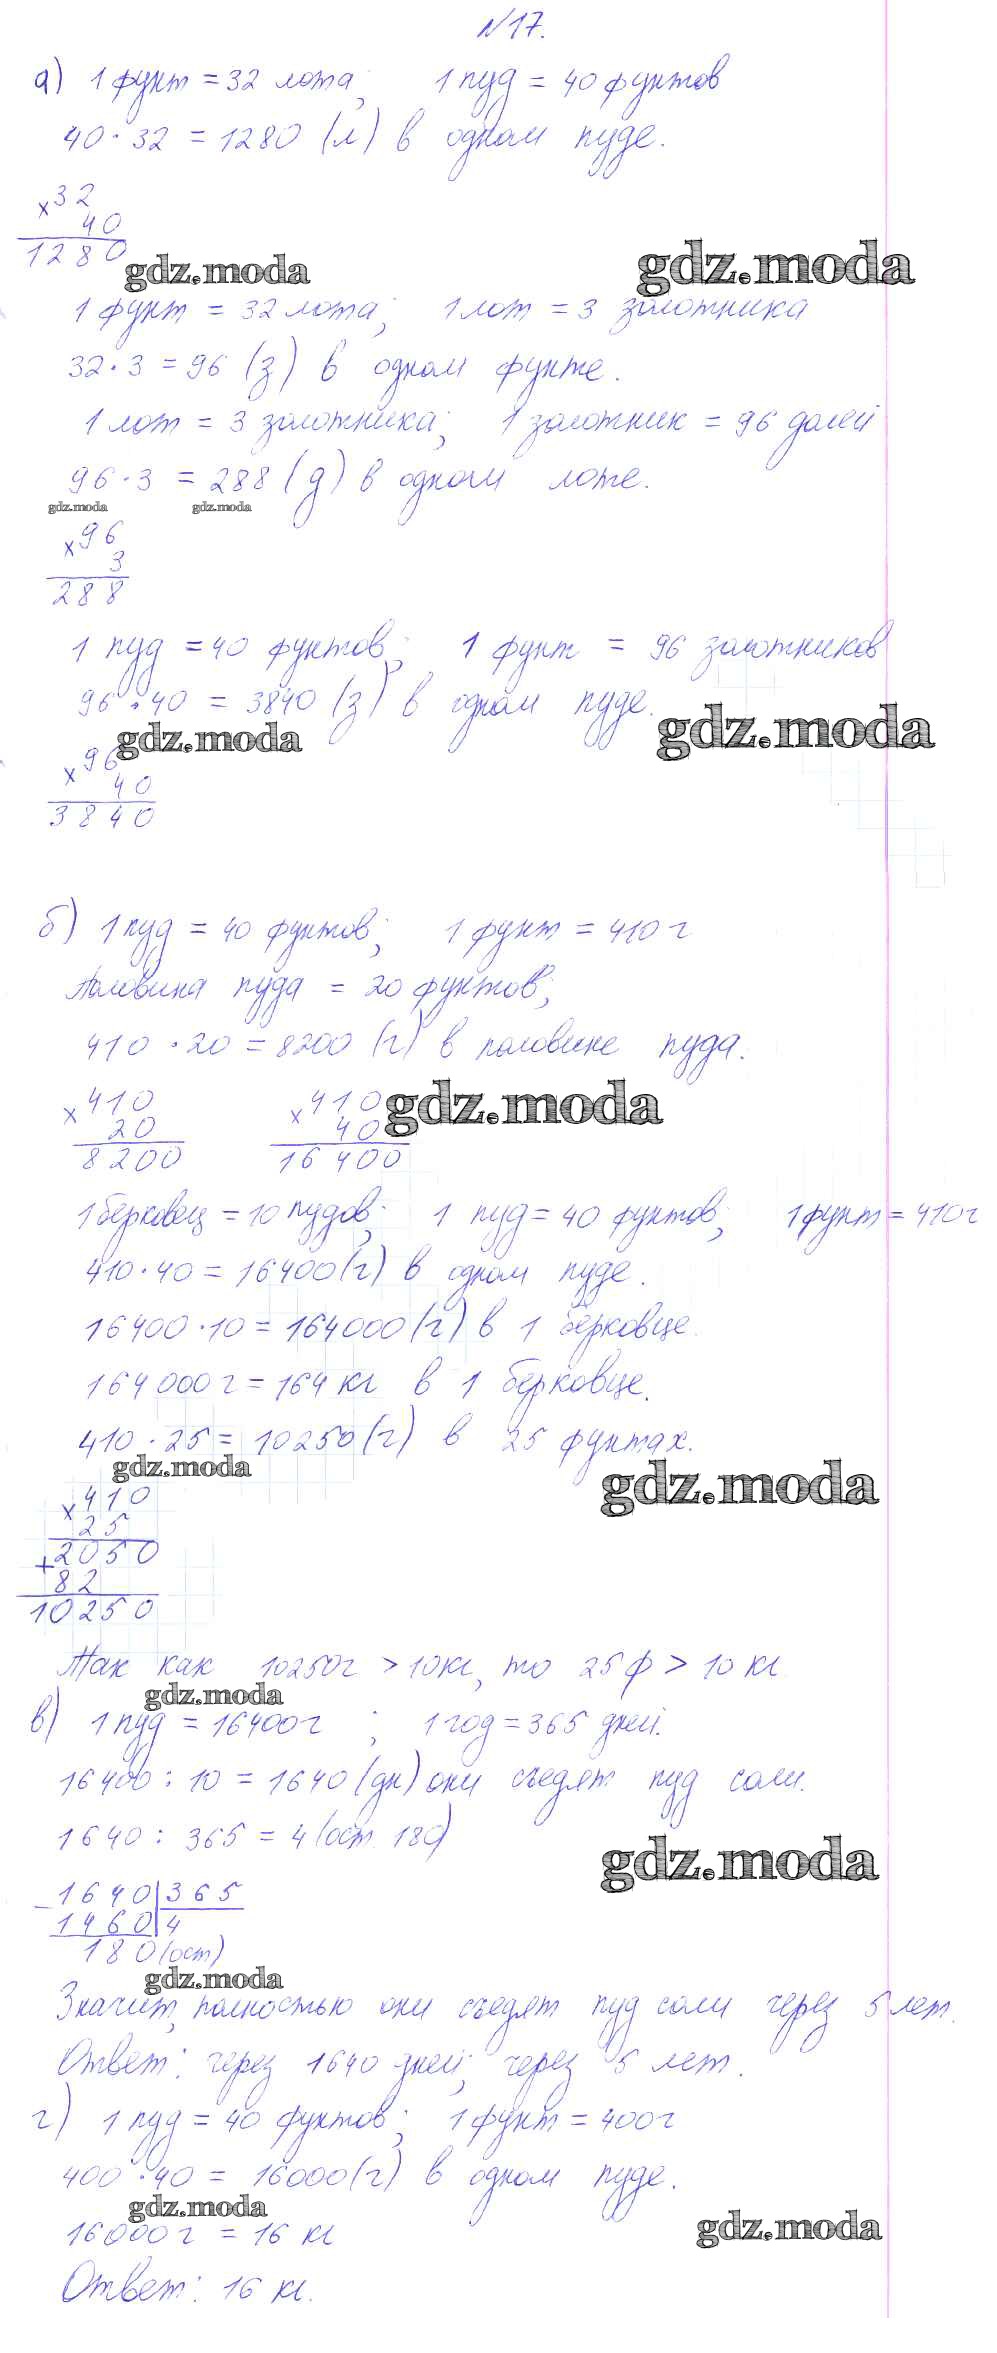 №17.
а) 1 фунт = 32 лота; 1 пуд = 40 фунтов
40 · 32 = 1280 (л) в одном пуде.
×32
40
1280
gdz.moda gdz.moda
1 фунт = 32 лота; 1 лот = 3 золотника
32 · 3 = 96 (з) в одном фунте.
1 лот = 3 золотника; 1 золотник = 96 долей
96 · 3 = 288 (д) в одном лоте.
gdz.moda gdz.moda
×96
3
288
1 пуд = 40 фунтов; 1 фунт = 96 золотников
96 · 40 = 3840 (з) в одном пуде.
gdz.moda gdz.moda
×96
40
3840
б) 1 пуд = 40 фунтов; 1 фунт = 410 г
Половина пуда = 20 фунтов;
410 · 20 = 8200 (г) в половине пуда.
×410 ×410 gdz.moda
20 40
8200 16400
1 берковец = 10 пудов; 1 пуд = 40 фунтов; 1 фунт = 410 г
410 · 40 = 16400 (г) в одном пуде.
16400 · 10 = 164000 (г) в 1 берковце.
164000 г = 164 кг в 1 берковце.
410 · 25 = 10250 (г) в 25 фунтах.
gdz.moda gdz.moda
×410
25
+2050
82
10250
Так как 10250 г > 10 кг, то 25 ф > 10 кг.
gdz.moda
в) 1 пуд = 16400 г ; 1 год = 365 дней.
16400 : 10 = 1640 (дн) они съедят пуд соли.
1640 : 365 = 4 (ост. 180)
gdz.moda
−1640 365
1460 4
180 (ост)
gdz.moda
Значит, полностью они съедят пуд соли через 5 лет.
Ответ: через 1640 дней; через 5 лет.
г) 1 пуд = 40 фунтов; 1 фунт = 400 г
400 · 40 = 16000 (г) в одном пуде.
gdz.moda gdz.moda
16000 г = 16 кг
Ответ: 16 кг.